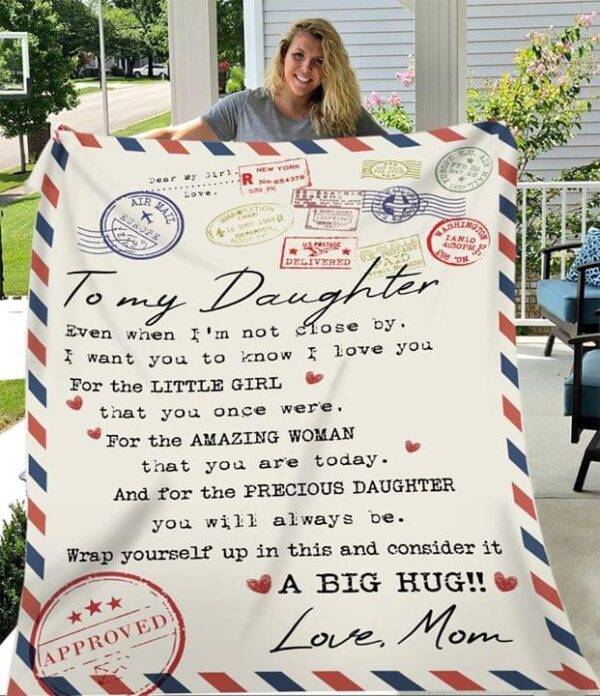 Dear My Girl.
Love.
R NEW YORK
No.
5:30 PM
AIR MAIL
EUROPE
U.S POSTAGE
DELIVERED
WASHINGTON D.C.
IAN10
4:30PM
To my Daughter
Even when I'm not close by,
I want you to know I love you
For the LITTLE GIRL
that you once were,
For the AMAZING WOMAN
that you are today.
And for the PRECIOUS DAUGHTER
you will always be.
Wrap yourself up in this and consider it
A BIG HUG!!
Love, Mom
APPROVED